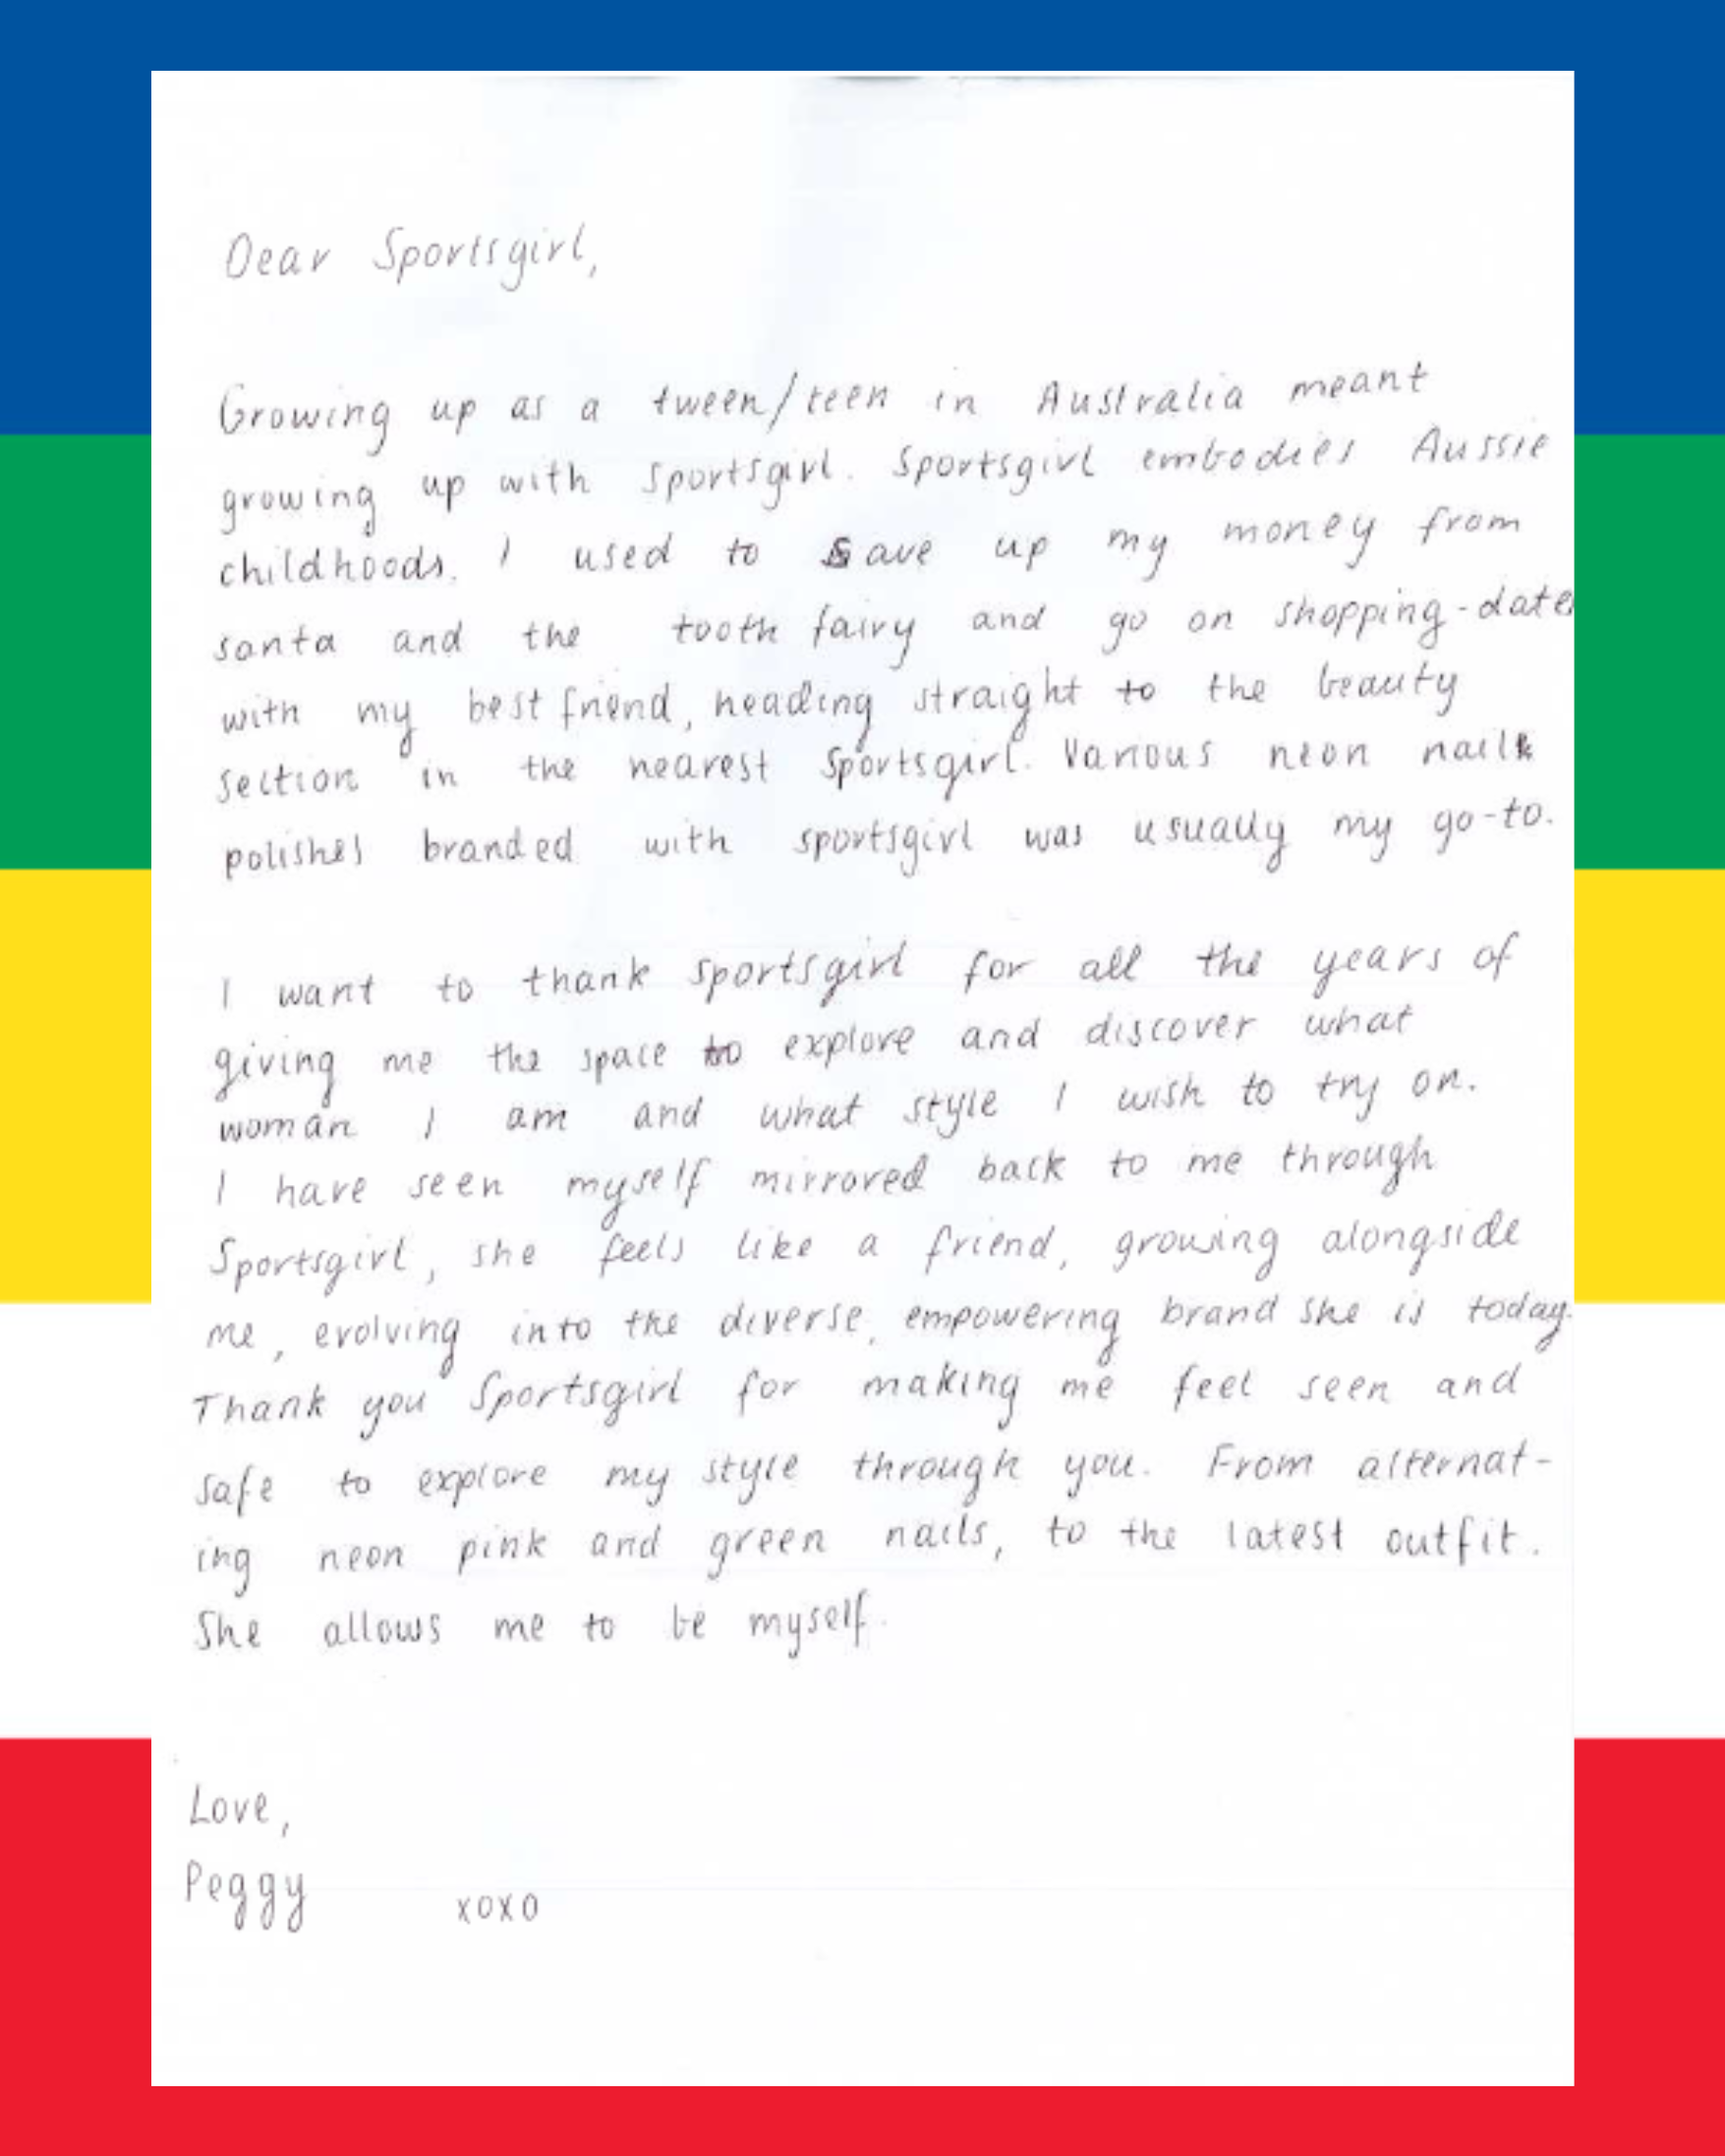 Dear Sportsgirl,
Growing up as a tween/teen in Australia meant
growing up with Sportsgirl. Sportsgirl embodies Aussie
childhoods. I used to save up my money from
santa and the tooth fairy and go on shopping-dates
with my best friend, heading straight to the beauty
section in the nearest Sportsgirl. Various neon nail
polishes branded with sportsgirl was usually my go-to.
I want to thank sportsgirl for all the years of
giving me the space to explore and discover what
woman I am and what style I wish to try on.
I have seen myself mirrored back to me through
Sportsgirl, she feels like a friend, growing alongside
me, evolving into the diverse, empowering brand she is today.
Thank you Sportsgirl for making me feel seen and
safe to explore my style through you. From alternat-
ing neon pink and green nails, to the latest outfit.
She allows me to be myself.
Love,
Peggy xoxo